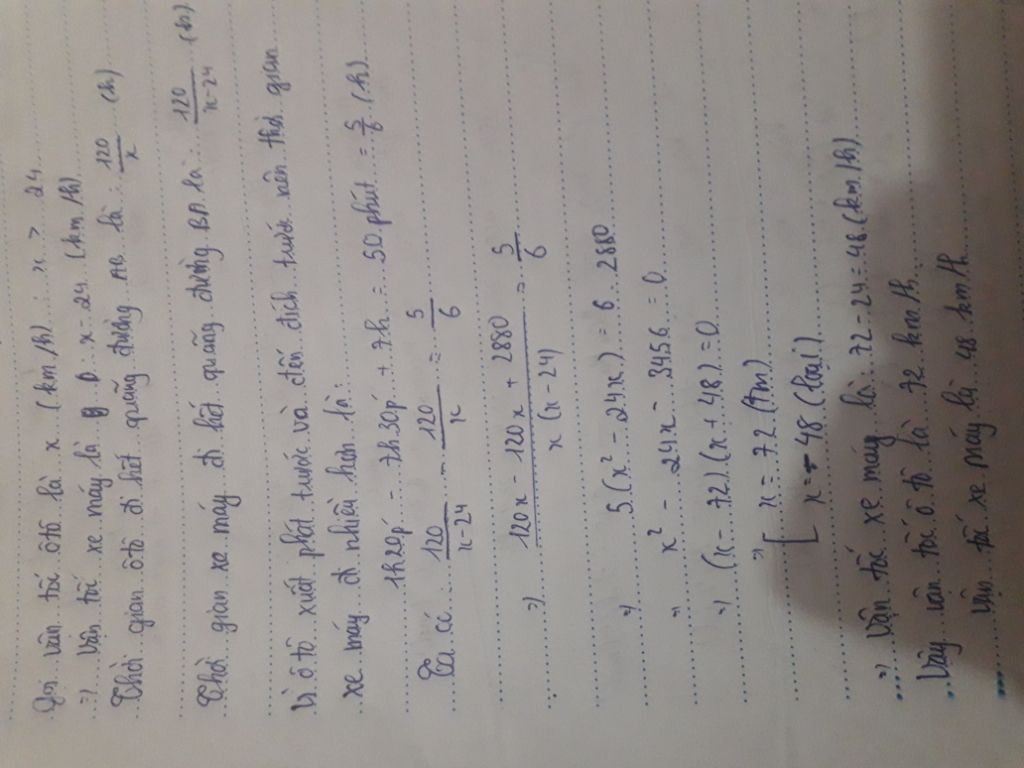 Gọi vận tốc ôtô là x (km/h) : x > 24
=) Vận tốc xe máy là : x - 24 (km/h)
Thời gian ôtô đi hết quãng đường AB là : 120/x (h)
Thời gian xe máy đi hết quãng đường BA là : 120/x-24 (h)
Vì ô tô xuất phát trước và đến đích trước nên thời gian
xe máy đi nhiều hơn là :
1h20p - 7h30p + 7h = 50 phút = 5/6 (h)
Ta có 120/x-24 - 120/x = 5/6
=) 120x - 120x + 2880/x(x-24) = 5/6
=) 5(x² - 24x) = 6. 2880
=) x² - 24x - 3456 = 0
=) (x - 72)(x + 48) = 0
=) [ x = 72 (tm)
x = -48 (loại)
=) Vận tốc xe máy là : 72 - 24 = 48 (km/h)
Vậy vận tốc ô tô là 72 km/h
Vận tốc xe máy là 48 km/h